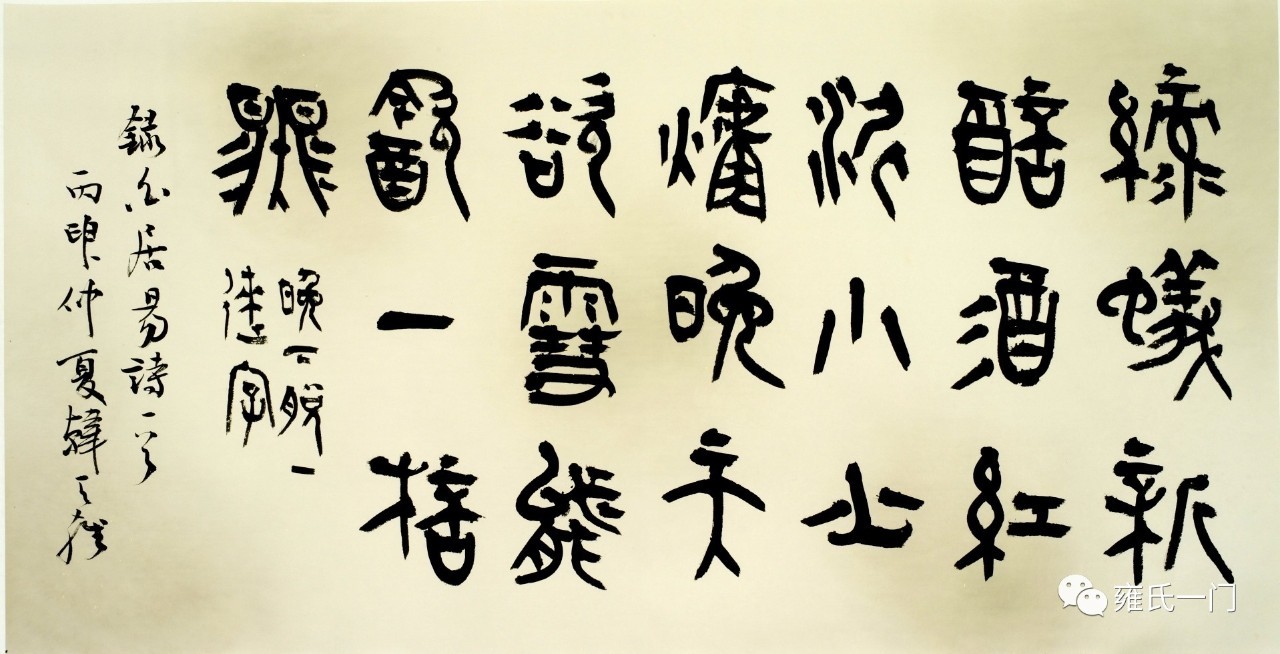 綠蟻新
醅酒紅
泥小火
爐晚天
欲雪能
飲一桮
無
晚下脫一
徠字
錄白居易詩一首
丙申仲夏韓天雍
雍氏一门